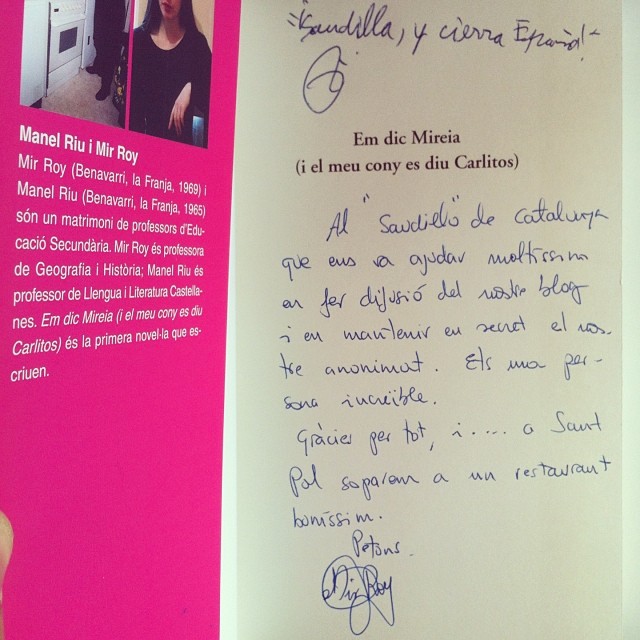 Manel Riu i Mir Roy
Mir Roy (Benavarri, la Franja, 1969) i
Manel Riu (Benavarri, la Franja, 1965)
són un matrimoni de professors d'Edu-
cació Secundària. Mir Roy és professora
de Geografia i Història; Manel Riu és
professor de Llengua i Literatura Castella-
nes. Em dic Mireia (i el meu cony es diu
Carlitos) és la primera novel·la que es-
criuen.
¡Saudilla, y cierra España!
Em dic Mireia
(i el meu cony es diu Carlitos)
Al "Saudillo" de Catalunya
que ens va ajudar moltíssim
en fer difusió del nostre blog
i en mantenir en secret el nos-
tre anonimat. Ets una per-
sona increïble.
Gràcies per tot, i.... a Sant
Pol soparem a un restaurant
boníssim.
Petons.
Mir Roy